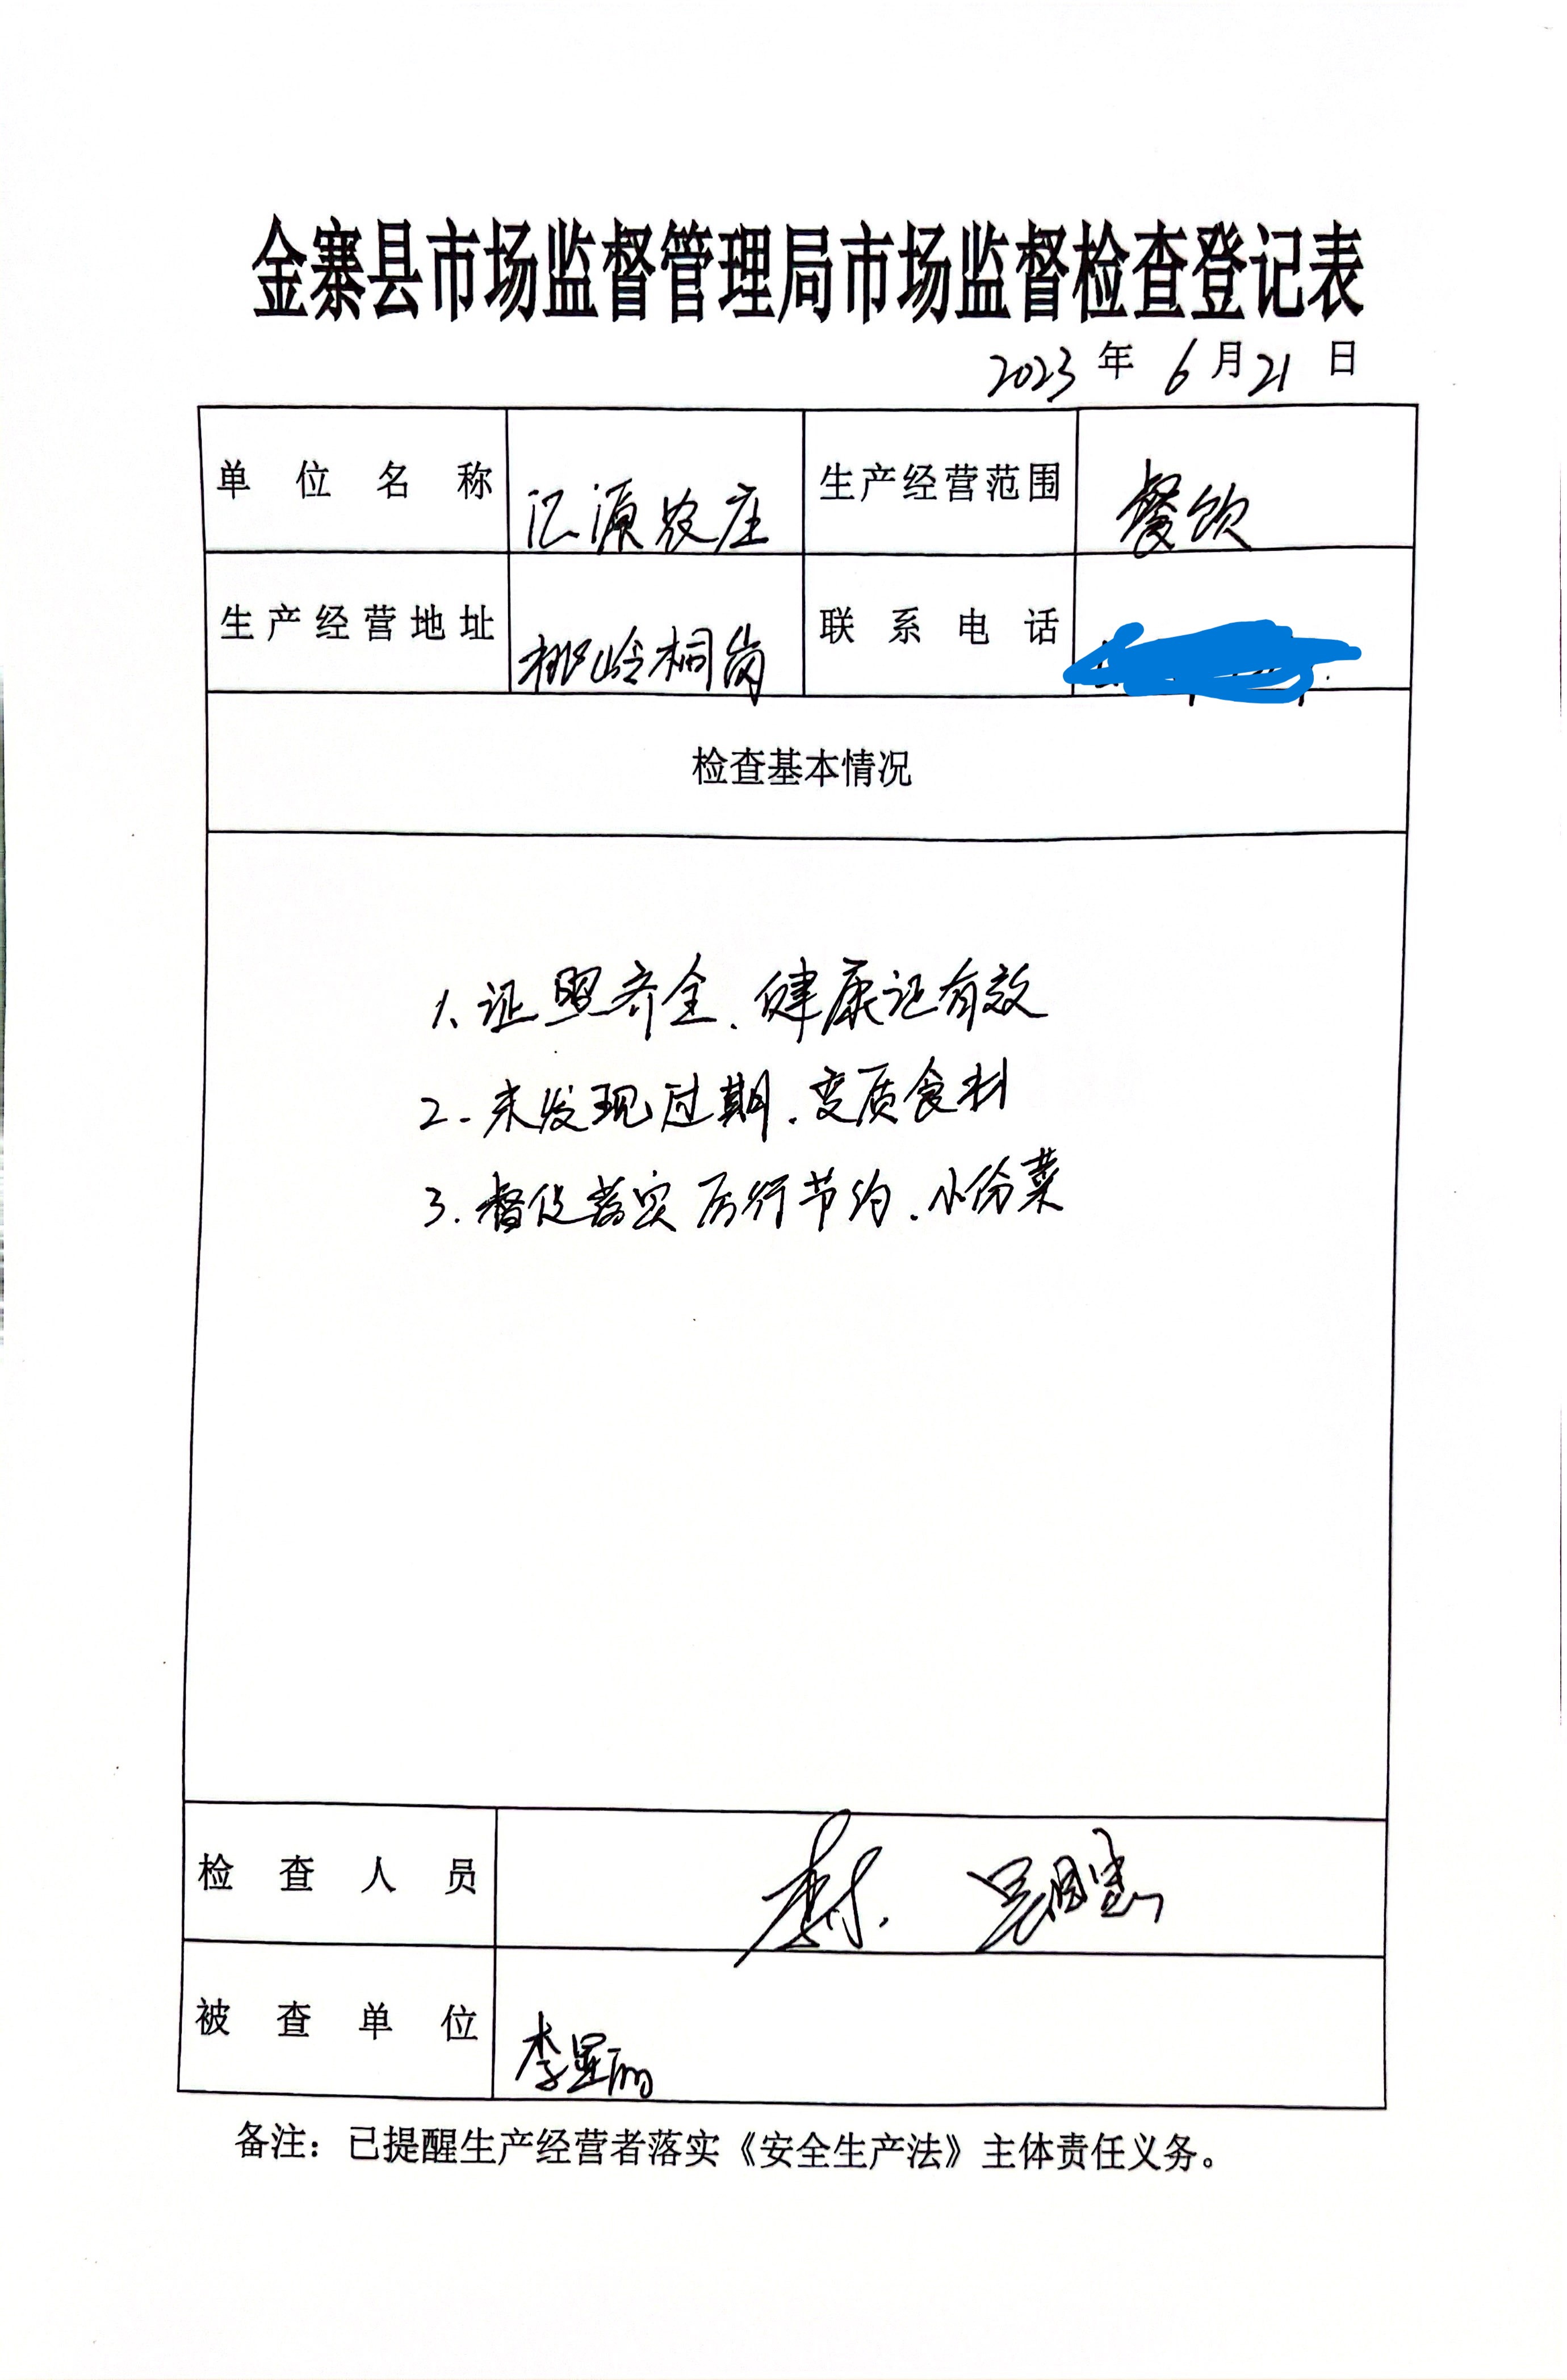 金寨县市场监督管理局市场监督检查登记表
2023年6月21日
单位名称 汇源农庄 生产经营范围 餐饮
生产经营地址 桃岭桐岗 联系电话
检查基本情况
1、证照齐全、健康证有效
2.未发现过期、变质食材
3.督促落实厉行节约、小份菜
检查人员
被查单位 李显
备注：已提醒生产经营者落实《安全生产法》主体责任义务。